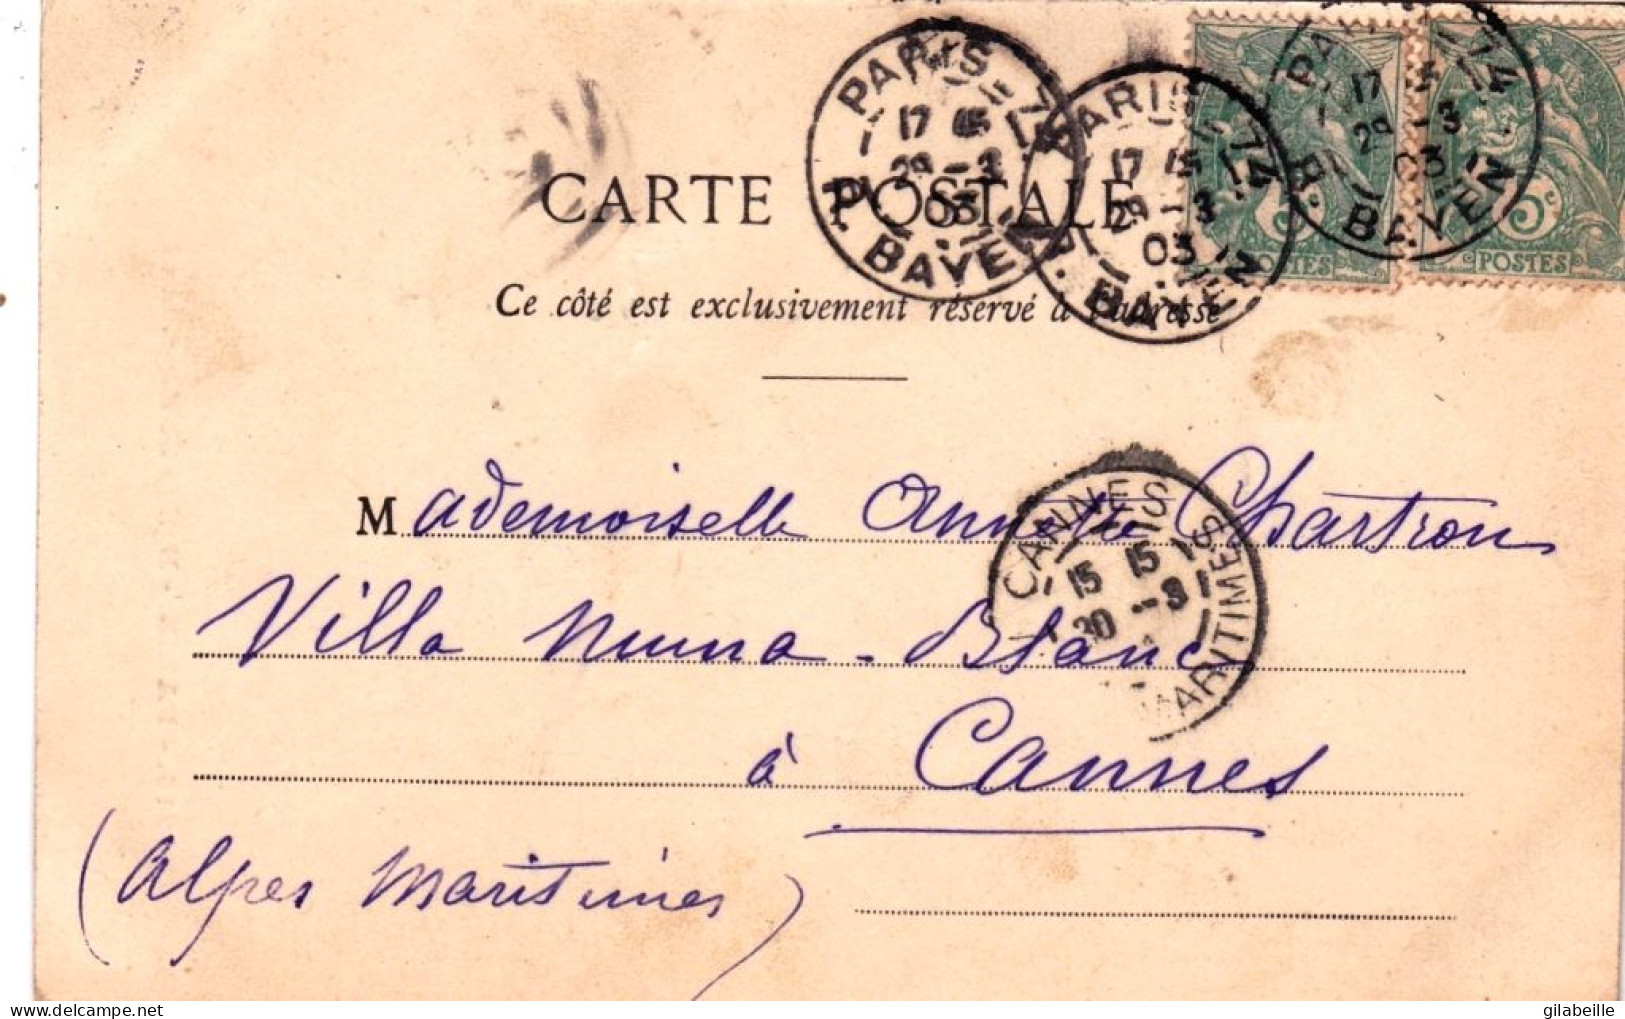 PARIS 74
17 15
29 -3
03
R. BAYEN
PARIS 74
17 15
29 -3
03
R. BAYEN
PARIS 74
17 15
29 -3
03
R. BAYEN
5c
POSTES
5c
POSTES
CARTE POSTALE
Ce côté est exclusivement réservé à l'adresse
Mademoiselle Annette Chartron
CANNES
15 15
30 -3
MARITIMES
Villa Numa-Blanc
à Cannes
(Alpes Maritimes)
gilabeille